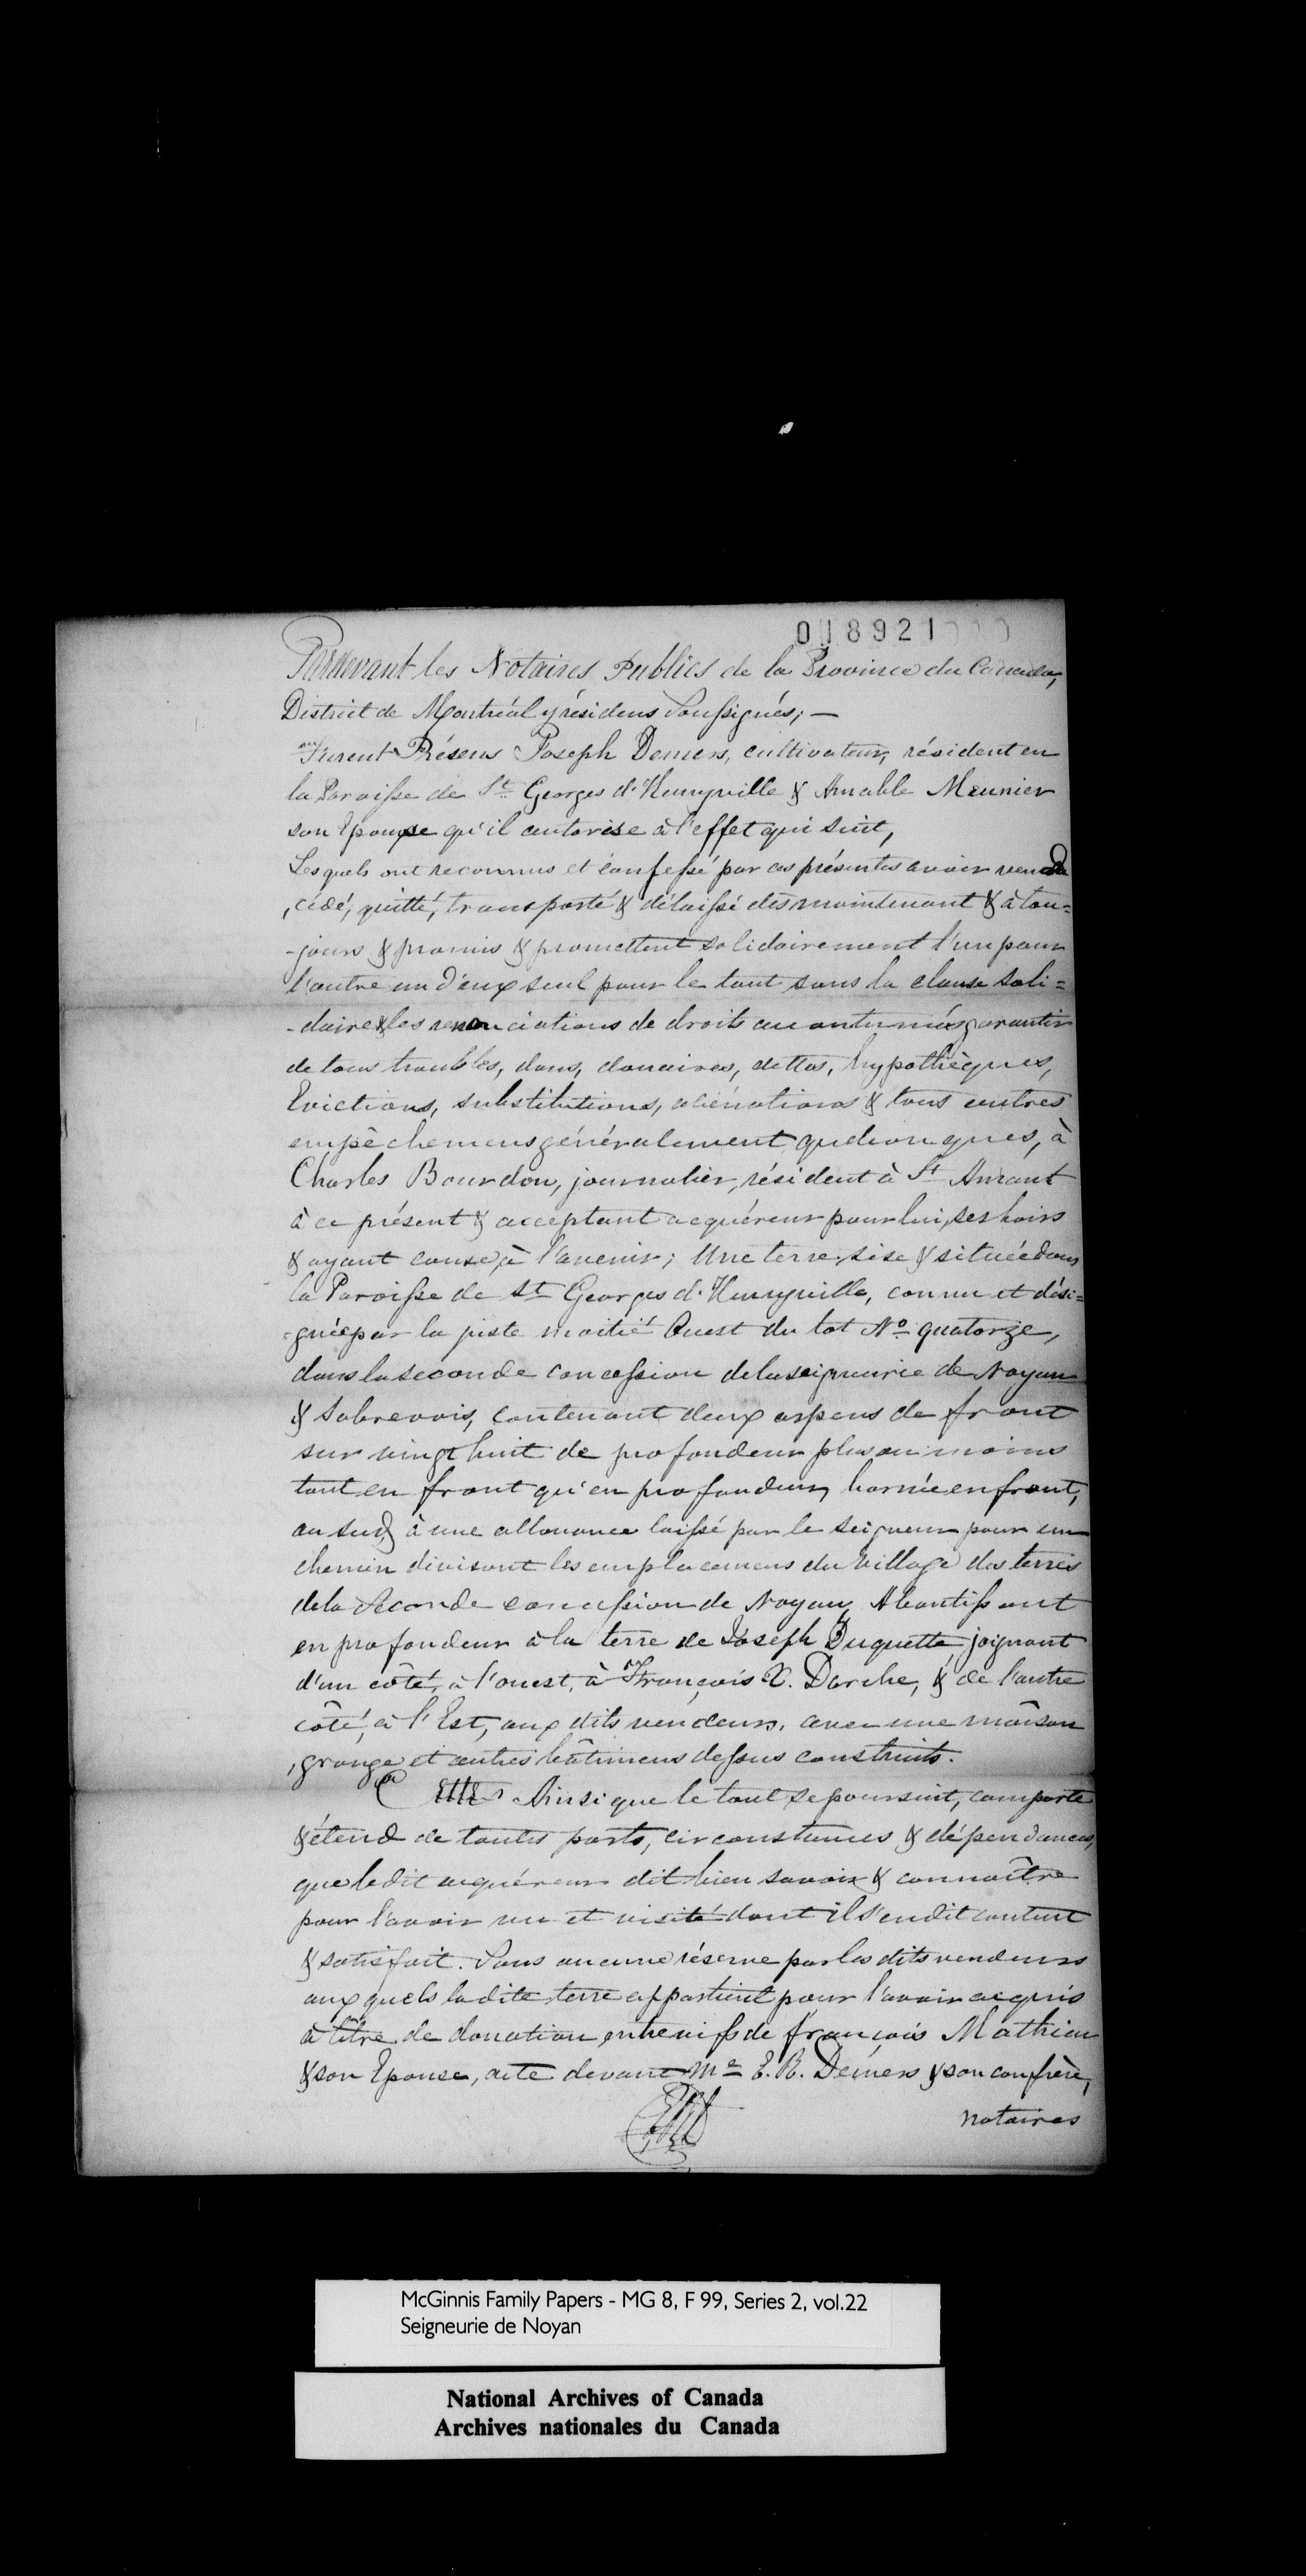 008921
Pardevant les Notaires Publics de la Province du Canada,
District de Montréal y résidens Soussignés; —
Furent Présens Joseph Demers, cultivateur, résident en
la Paroisse de St Georges d'Henryville & Amable Meunier
son Epouse qu'il autorise à l'effet qui suit,
Lesquels ont reconnus et confessé par ces présentes avoir vendu
, cédé, quitté, transporté & délaissé dès maintenant & à tou=
-jours & promis & promettent solidairement l'un pour
l'autre un d'eux seul pour le tout sous la clause soli=
-daire & les renonciations de droits accoutumés garantir
de tous troubles, dons, douaires, dettes, hypothèques,
Evictions, substitutions, aliénations & tous autres
empêchemens généralement quelconques, à
Charles Bourdon, journalier, résident à St
à ce présent & acceptant acquéreur pour lui, ses hoirs
& ayant cause, à l'avenir; Une terre sise & située dans
la Paroisse de St Georges d'Henryville, connu et dési=
-gnée par la juste moitié Ouest du lot No quatorze,
dans la seconde concession de la seigneurie de Noyan
& Sabrevois, contenant deux arpens de front
sur vingt huit de profondeur plus ou moins
tant en front qu'en profondeur, bornée en front,
au Sud, à une allouance laissé par le Seigneur pour un
chemin divisant les emplacemens du Village des terres
de la Seconde concession de Noyan, Aboutissant
en profondeur à la terre de Joseph Duquette joignant
d'un côté, à l'ouest, à François X. Darche, & de l'autre
côté, à l'Est, aux dits vendeurs, avec une maison
, grange et autres bâtimens dessus construits.
Ainsi que le tout se poursuit, comporte
& étend de toutes parts, circonstances & dépendances,
que ledit acquéreur dit bien savoir & connaître
pour l'avoir vu et visité dont il s'en dit content
& satisfait. Sans aucune réserve par les dits vendeurs
aux quels la dite terre appartient pour l'avoir acquis
à titre de donation entrevifs de françois Mathieu
& son Epouse, acte devant Me E. R. Demers & son confrère,
notaires
McGinnis Family Papers - MG 8, F 99, Series 2, vol.22
Seigneurie de Noyan
National Archives of Canada
Archives nationales du Canada